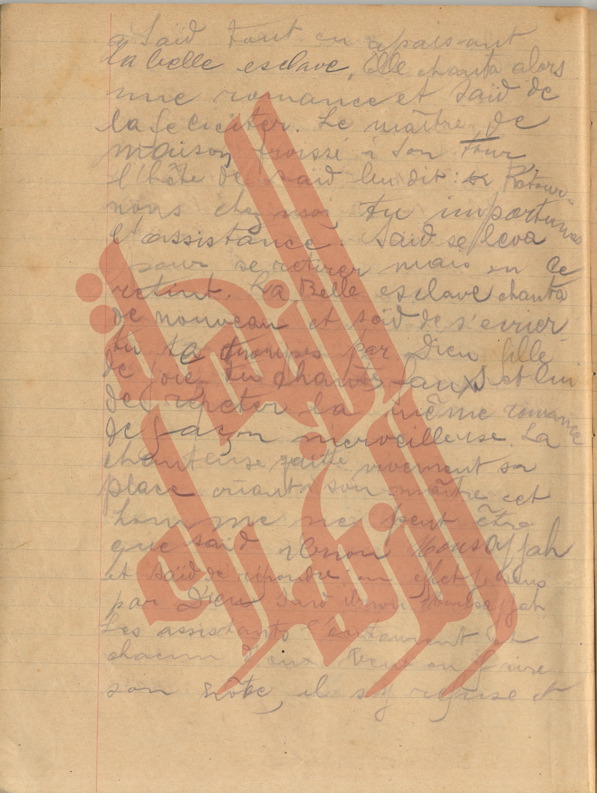 a Saïd tout en apaisant
la belle esclave, Elle chanta alors
une romance et Saïd de
la feliciter. Le maître de
maison froissé à son tour,
l'hôte de Saïd lui dit: Retour-
nons chez nous tu importunes
l'assistance. Saïd se leva
pour se retirer mais on le
retint. La Belle esclave chanta
de nouveau et Saïd de s'ecrier
tu te trompes par Dieu fille
de joie. Tu chantes faux et lui
de repeter la même romance
de façon merveilleuse. La
chanteuse quitte vivement sa
place criant a son maître cet
homme ne peut être
que Saïd ibnou Mousajjah
et Saïd de répondre en effet je suis
par Dieu Saïd ibnou Mousajjah
Les assistants l'entourent et
chacun d'eux
son hôte, il s'y refuse et